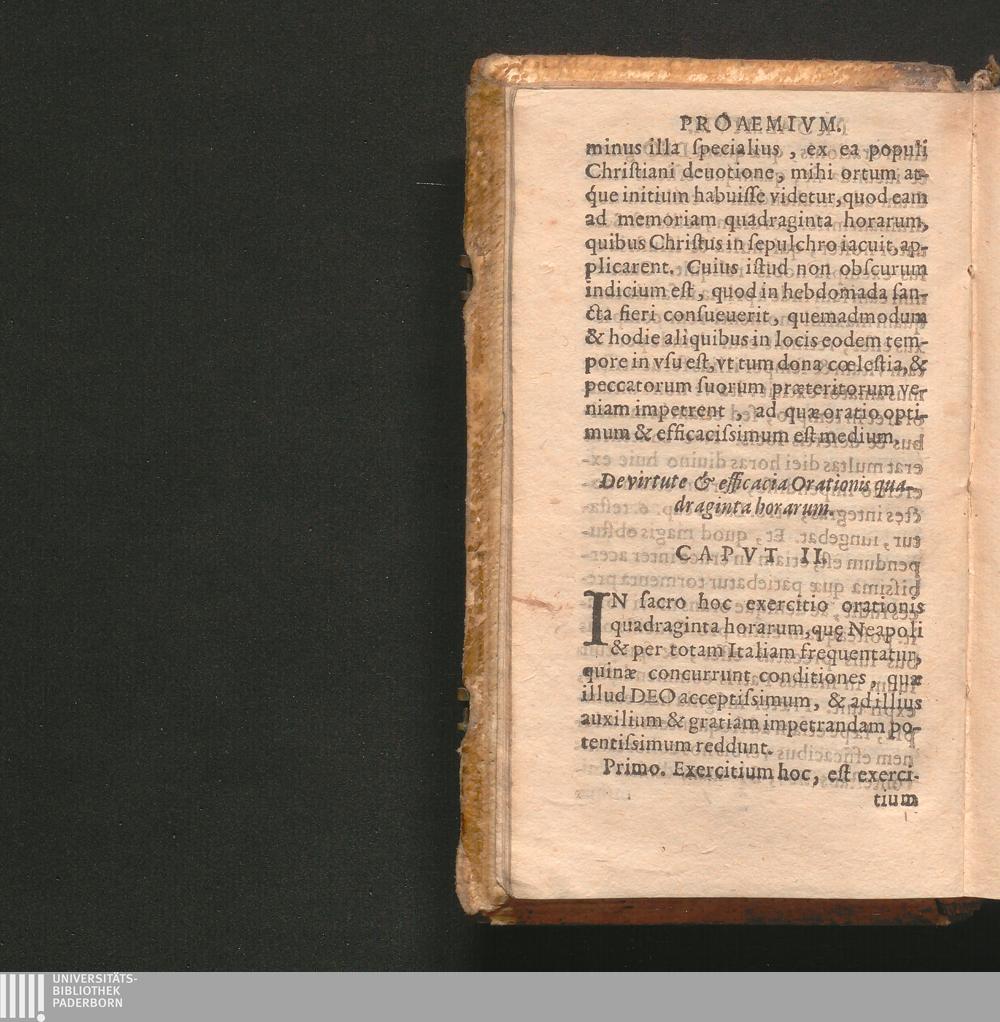 PROAEMIVM.
minus illa ſpecialius, ex ea populi
Chriſtiani deuotione, mihi ortum at-
que initium habuiſſe videtur, quod eam
ad memoriam quadraginta horarum,
quibus Chriſtus in ſepulchro iacuit, ap-
plicarent. Cuius iſtud non obſcurum
indicium eſt, quod in hebdomada ſan-
cta fieri conſueuerit, quemadmodum
& hodie aliquibus in locis eodem tem-
pore in vſu eſt, vt tum dona cœleſtia, &
peccatorum ſuorum præteritorum ve-
niam impetrent, ad quæ oratio opti-
mum & efficaciſsimum eſt medium.
De virtute & efficacia Orationis qua-
draginta horarum.
CAPVT II.
IN ſacro hoc exercitio orationis
quadraginta horarum, quę Neapoli
& per totam Italiam frequentatur,
quinæ concurrunt conditiones, quæ
illud DEO acceptiſsimum, & ad illius
auxilium & gratiam impetrandam po-
tentiſsimum reddunt.
Primo. Exercitium hoc, eſt exerci-
tium
UNIVERSITÄTS-
BIBLIOTHEK
PADERBORN